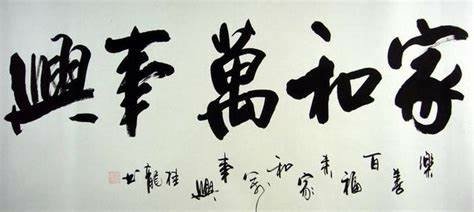 家和萬事興
樂善百福来家和萬事興 桂龍书